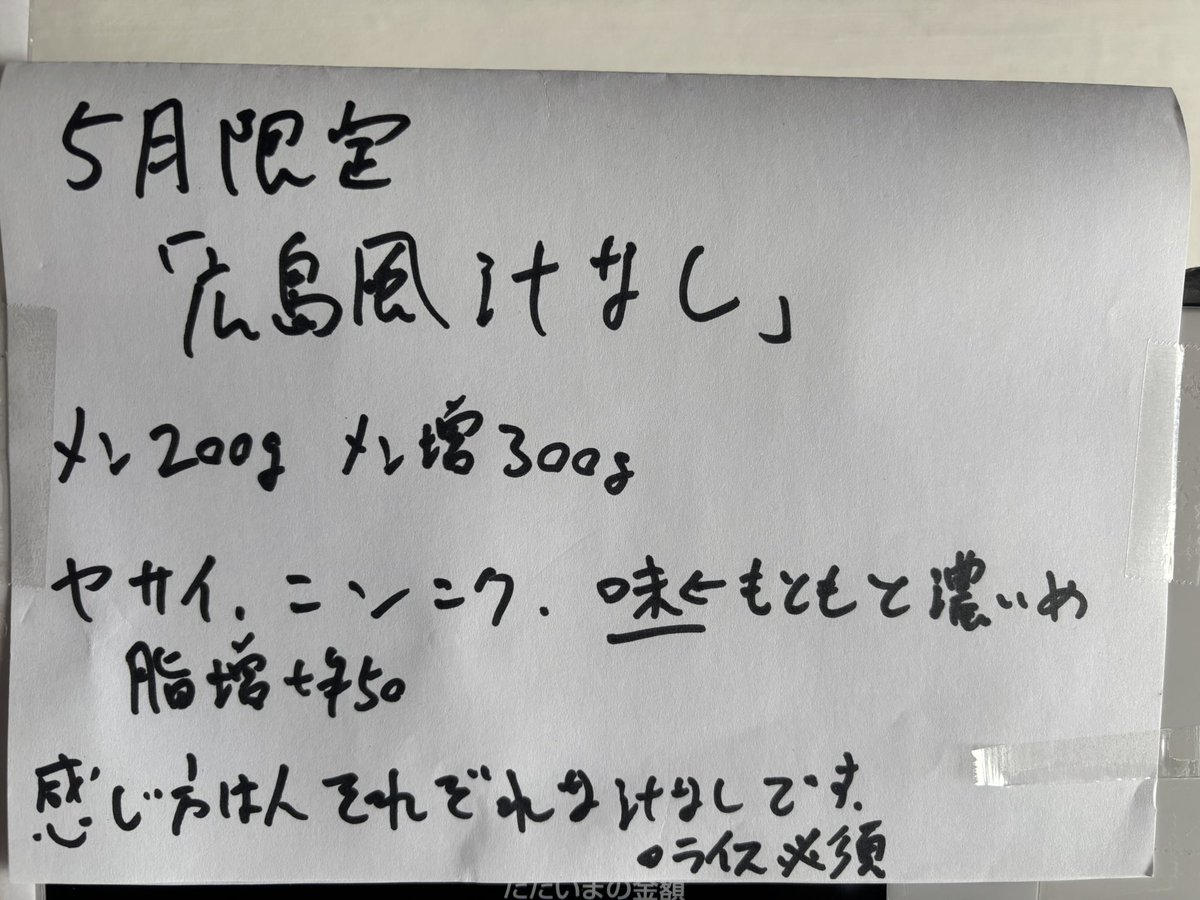 5月限定
「広島風汁なし」
メン200g メン増300g
ヤサイ.ニンニク.味←もともと濃いめ
脂増+¥50
感じ方は人それぞれな汁なしです.
○ライス必須
ただいまの金額